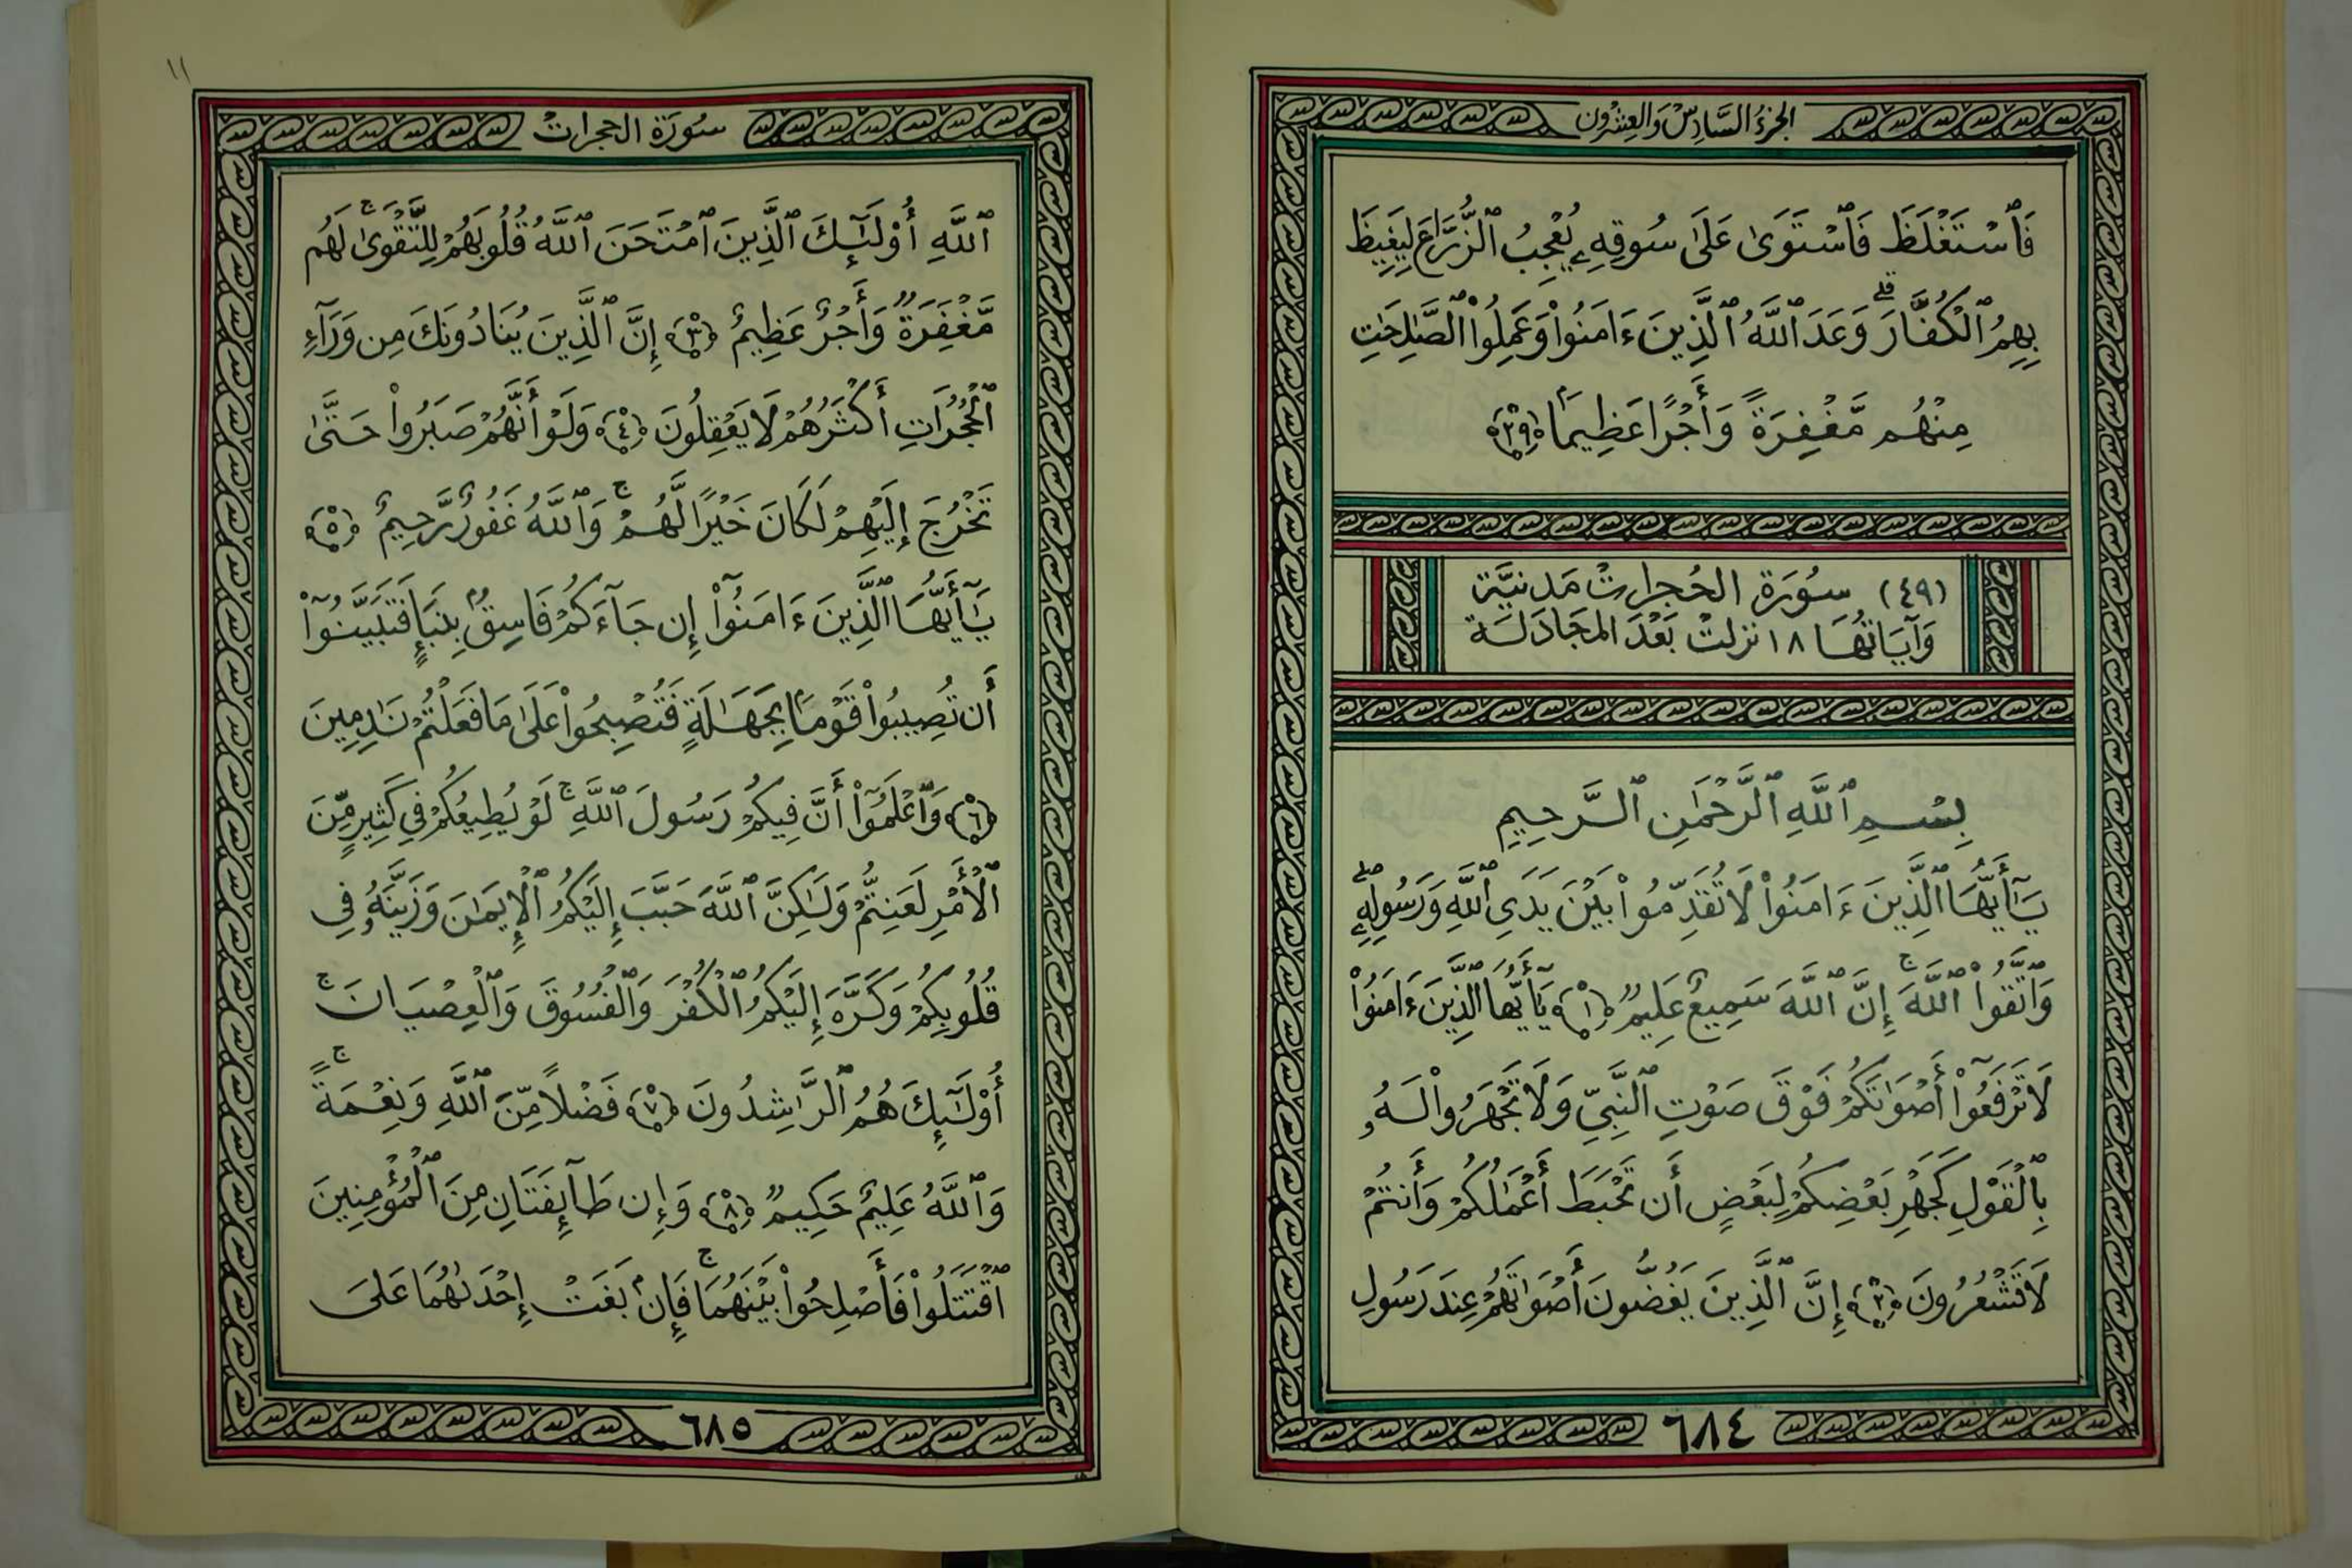 الجزءُ السَّادِسُ وَالعِشْرُون
فَٱسْتَغْلَظَ فَٱسْتَوَىٰ عَلَىٰ سُوقِهِۦ يُعْجِبُ ٱلزُّرَّاعَ لِيَغِيظَ
بِهِمُ ٱلْكُفَّارَ ۗ وَعَدَ ٱللَّهُ ٱلَّذِينَ ءَامَنُوا۟ وَعَمِلُوا۟ ٱلصَّٰلِحَٰتِ
مِنْهُم مَّغْفِرَةً وَأَجْرًا عَظِيمًۢا ﴿٢٩﴾
(٤٩) سُورَة الحُجرات مَدنيَّة
وَآيَاتُهَا ١٨ نزلت بَعْدَ المجَادَلَة
بِسْمِ ٱللَّهِ ٱلرَّحْمَٰنِ ٱلرَّحِيمِ
يَٰٓأَيُّهَا ٱلَّذِينَ ءَامَنُوا۟ لَا تُقَدِّمُوا۟ بَيْنَ يَدَىِ ٱللَّهِ وَرَسُولِهِۦ ۖ
وَٱتَّقُوا۟ ٱللَّهَ ۚ إِنَّ ٱللَّهَ سَمِيعٌ عَلِيمٌ ﴿١﴾ يَٰٓأَيُّهَا ٱلَّذِينَ ءَامَنُوا۟
لَا تَرْفَعُوٓا۟ أَصْوَٰتَكُمْ فَوْقَ صَوْتِ ٱلنَّبِىِّ وَلَا تَجْهَرُوا۟ لَهُۥ
بِٱلْقَوْلِ كَجَهْرِ بَعْضِكُمْ لِبَعْضٍ أَن تَحْبَطَ أَعْمَٰلُكُمْ وَأَنتُمْ
لَا تَشْعُرُونَ ﴿٢﴾ إِنَّ ٱلَّذِينَ يَغُضُّونَ أَصْوَٰتَهُمْ عِندَ رَسُولِ
٦٨٤
١١
سُورَة الحجرات
ٱللَّهِ أُو۟لَٰٓئِكَ ٱلَّذِينَ ٱمْتَحَنَ ٱللَّهُ قُلُوبَهُمْ لِلتَّقْوَىٰ ۚ لَهُم
مَّغْفِرَةٌ وَأَجْرٌ عَظِيمٌ ﴿٣﴾ إِنَّ ٱلَّذِينَ يُنَادُونَكَ مِن وَرَآءِ
ٱلْحُجُرَٰتِ أَكْثَرُهُمْ لَا يَعْقِلُونَ ﴿٤﴾ وَلَوْ أَنَّهُمْ صَبَرُوا۟ حَتَّىٰ
تَخْرُجَ إِلَيْهِمْ لَكَانَ خَيْرًا لَّهُمْ ۚ وَٱللَّهُ غَفُورٌ رَّحِيمٌ ﴿٥﴾
يَٰٓأَيُّهَا ٱلَّذِينَ ءَامَنُوٓا۟ إِن جَآءَكُمْ فَاسِقٌۢ بِنَبَإٍ فَتَبَيَّنُوٓا۟
أَن تُصِيبُوا۟ قَوْمًۢا بِجَهَٰلَةٍ فَتُصْبِحُوا۟ عَلَىٰ مَا فَعَلْتُمْ نَٰدِمِينَ
﴿٦﴾ وَٱعْلَمُوٓا۟ أَنَّ فِيكُمْ رَسُولَ ٱللَّهِ ۚ لَوْ يُطِيعُكُمْ فِى كَثِيرٍ مِّنَ
ٱلْأَمْرِ لَعَنِتُّمْ وَلَٰكِنَّ ٱللَّهَ حَبَّبَ إِلَيْكُمُ ٱلْإِيمَٰنَ وَزَيَّنَهُۥ فِى
قُلُوبِكُمْ وَكَرَّهَ إِلَيْكُمُ ٱلْكُفْرَ وَٱلْفُسُوقَ وَٱلْعِصْيَانَ ۚ
أُو۟لَٰٓئِكَ هُمُ ٱلرَّٰشِدُونَ ﴿٧﴾ فَضْلًا مِّنَ ٱللَّهِ وَنِعْمَةً ۚ
وَٱللَّهُ عَلِيمٌ حَكِيمٌ ﴿٨﴾ وَإِن طَآئِفَتَانِ مِنَ ٱلْمُؤْمِنِينَ
ٱقْتَتَلُوا۟ فَأَصْلِحُوا۟ بَيْنَهُمَا ۚ فَإِنۢ بَغَتْ إِحْدَىٰهُمَا عَلَى
٦٨٥